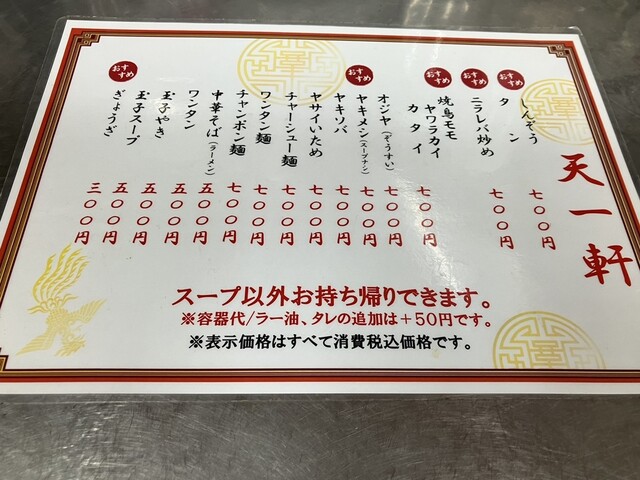 天一軒
しんぞう
おすすめ
タン
七〇〇円
おすすめ
ニラレバ炒め
七〇〇円
おすすめ
焼鳥モモ
ヤワラカイ
カタイ
七〇〇円
オジヤ(ぞうすい)
七〇〇円
おすすめ
ヤキメシ(スープナシ)
七〇〇円
ヤキソバ
七〇〇円
ヤサイいため
七〇〇円
チャーシュー麺
七〇〇円
ワンタン麺
七〇〇円
チャンポン麺
七〇〇円
中華そば(ラーメン)
五〇〇円
ワンタン
五〇〇円
玉子やき
五〇〇円
玉子スープ
五〇〇円
おすすめ
ぎょうざ
三〇〇円
スープ以外お持ち帰りできます。
※容器代/ラー油、タレの追加は+50円です。
※表示価格はすべて消費税込価格です。